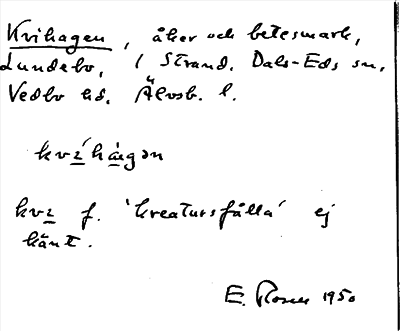 Kvihagen, åker och betesmark,
Lundebo, / Strand, Dals-Eds sn,
Vedbo hd. Älvsb. l.
kvɪ́hàgən
kvɪ f. 'kreatursfålla' ej
känt.
E. Rosen 1950